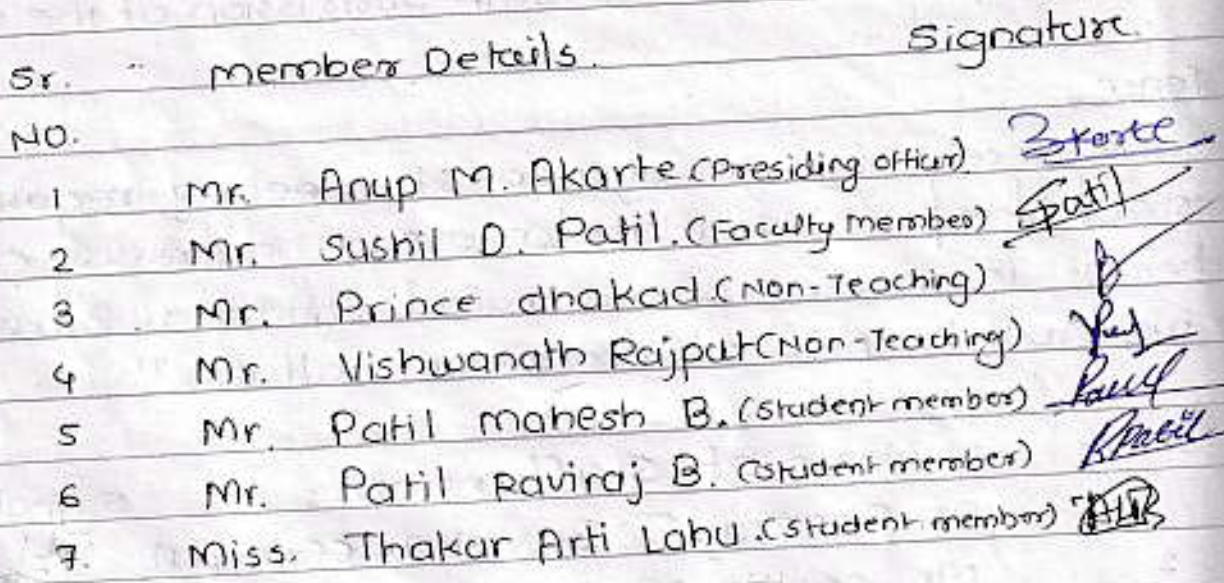 Sr. member Details. Signature.
NO.
1 Mr. Anup M. Akarte (Presiding officer)
2 Mr. Sushil D. Patil. (Faculty member) Spatil
3 Mr. Prince dhakad (Non-Teaching)
4 Mr. Vishwanath Rajput (Non-Teaching)
5 Mr. Patil mahesh B. (student member)
6 Mr. Patil Raviraj B. (student member) RPatil
7. Miss. Thakar Arti Lahu. (student member)